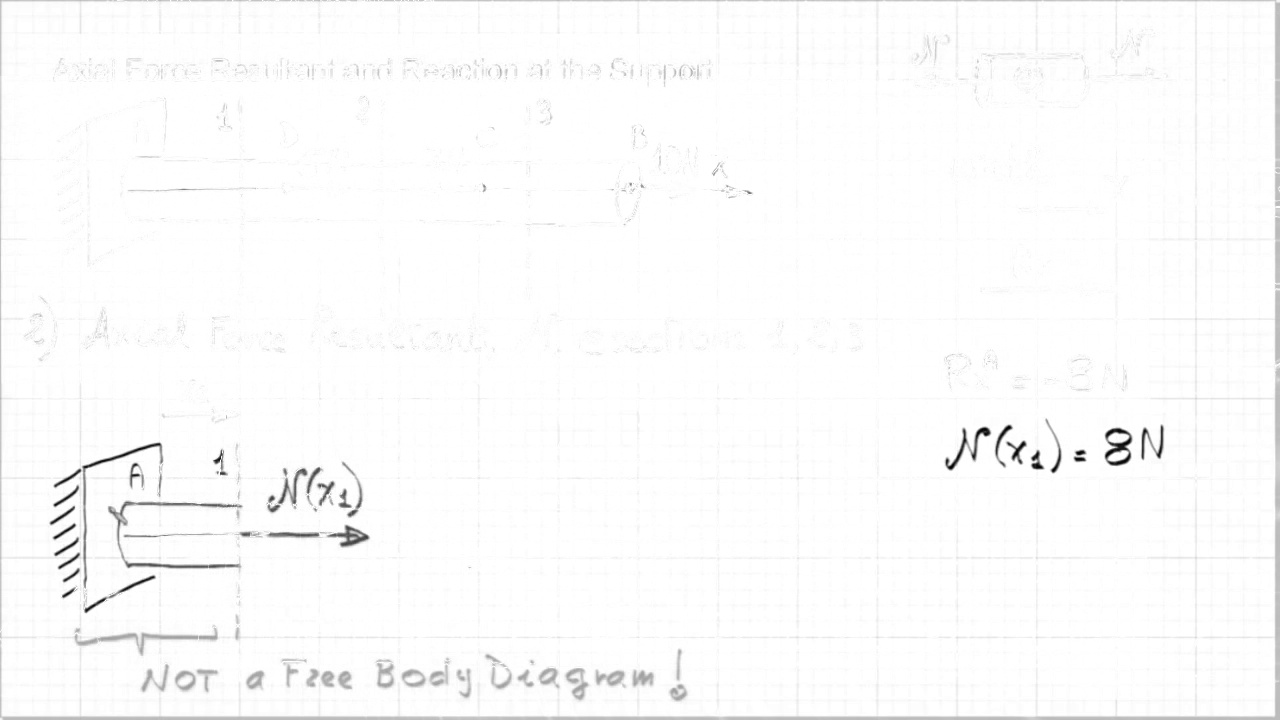 Axial Force Resultant and Reaction at the Support
N N
1 2 3
D C B 10N x
2) Axial Force Resultant, N, @ sections 1,2,3
RxA = -8N
N(x1) = 8N
A 1 N(x1)
NOT a Free Body Diagram!